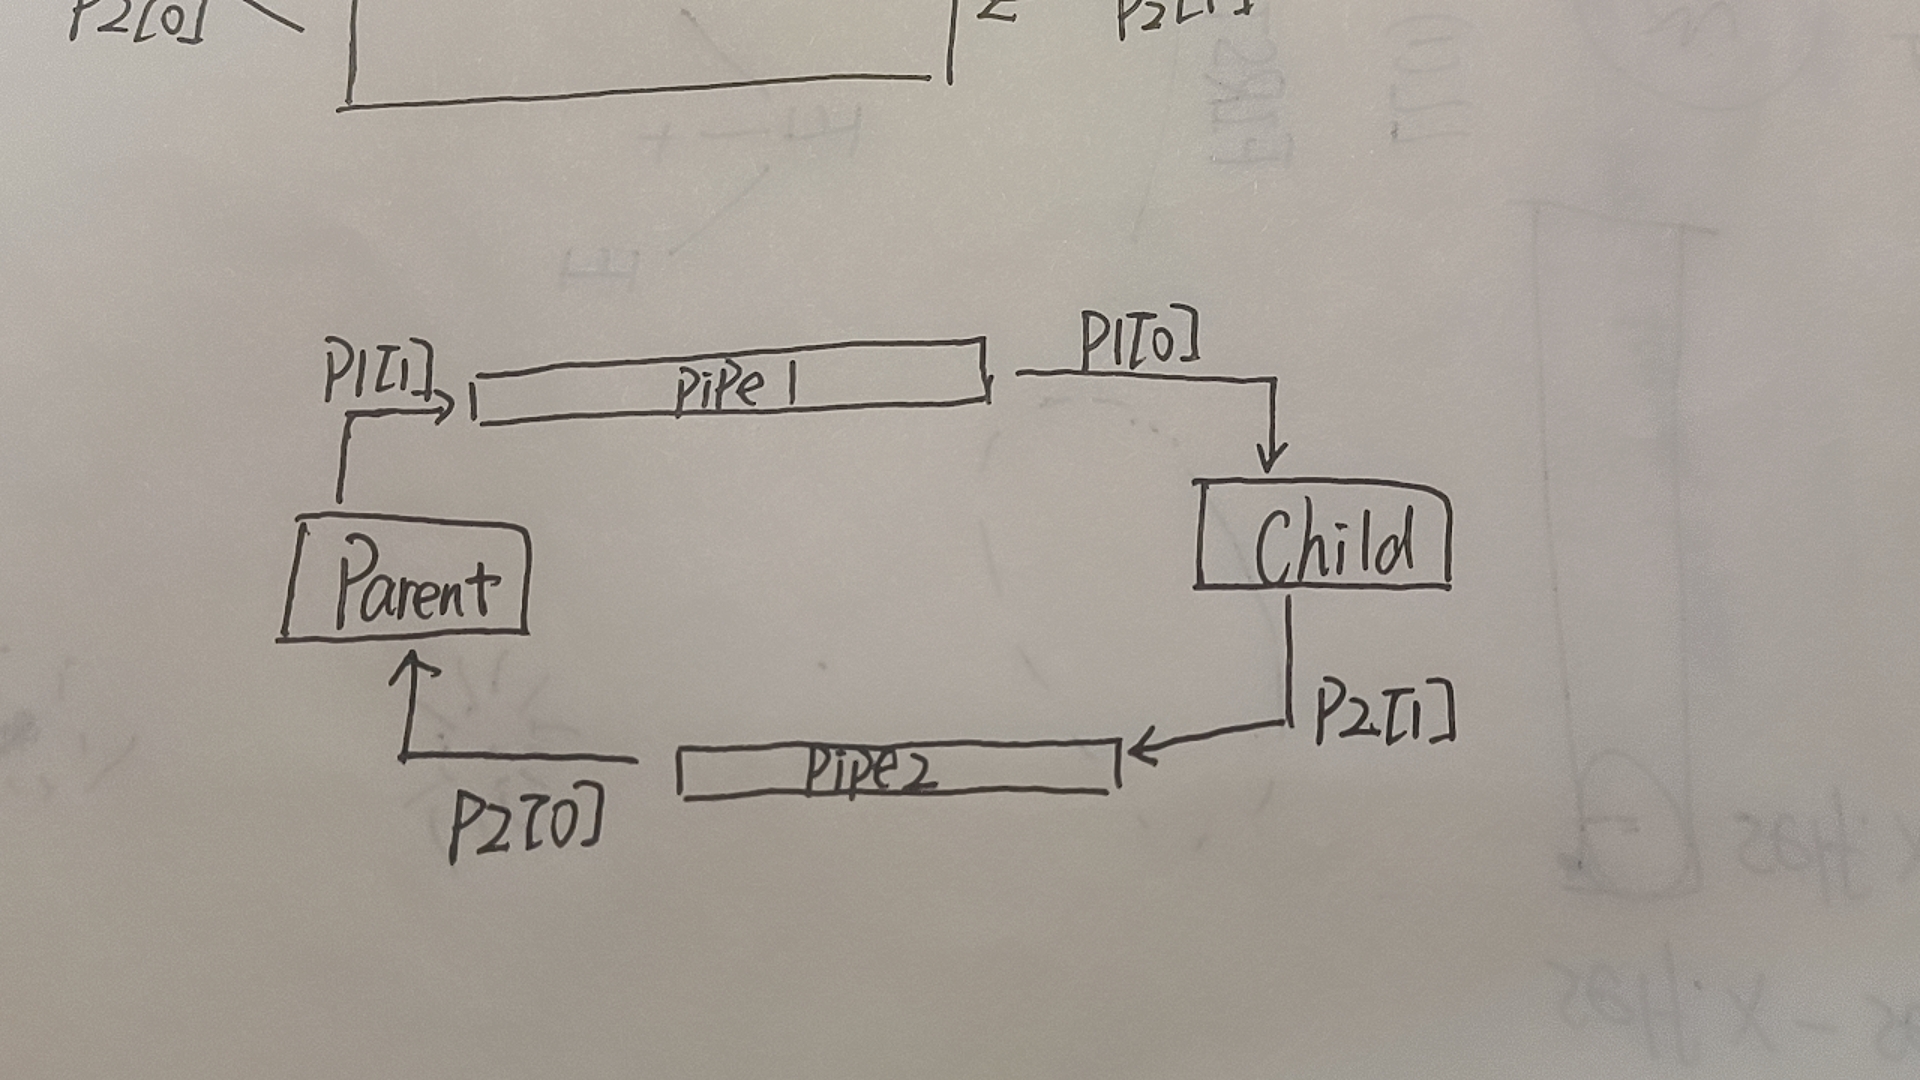 P2[0]
P2[1]
P1[1]
pipe 1
P1[0]
Parent
Child
P2[1]
pipe2
P2[0]